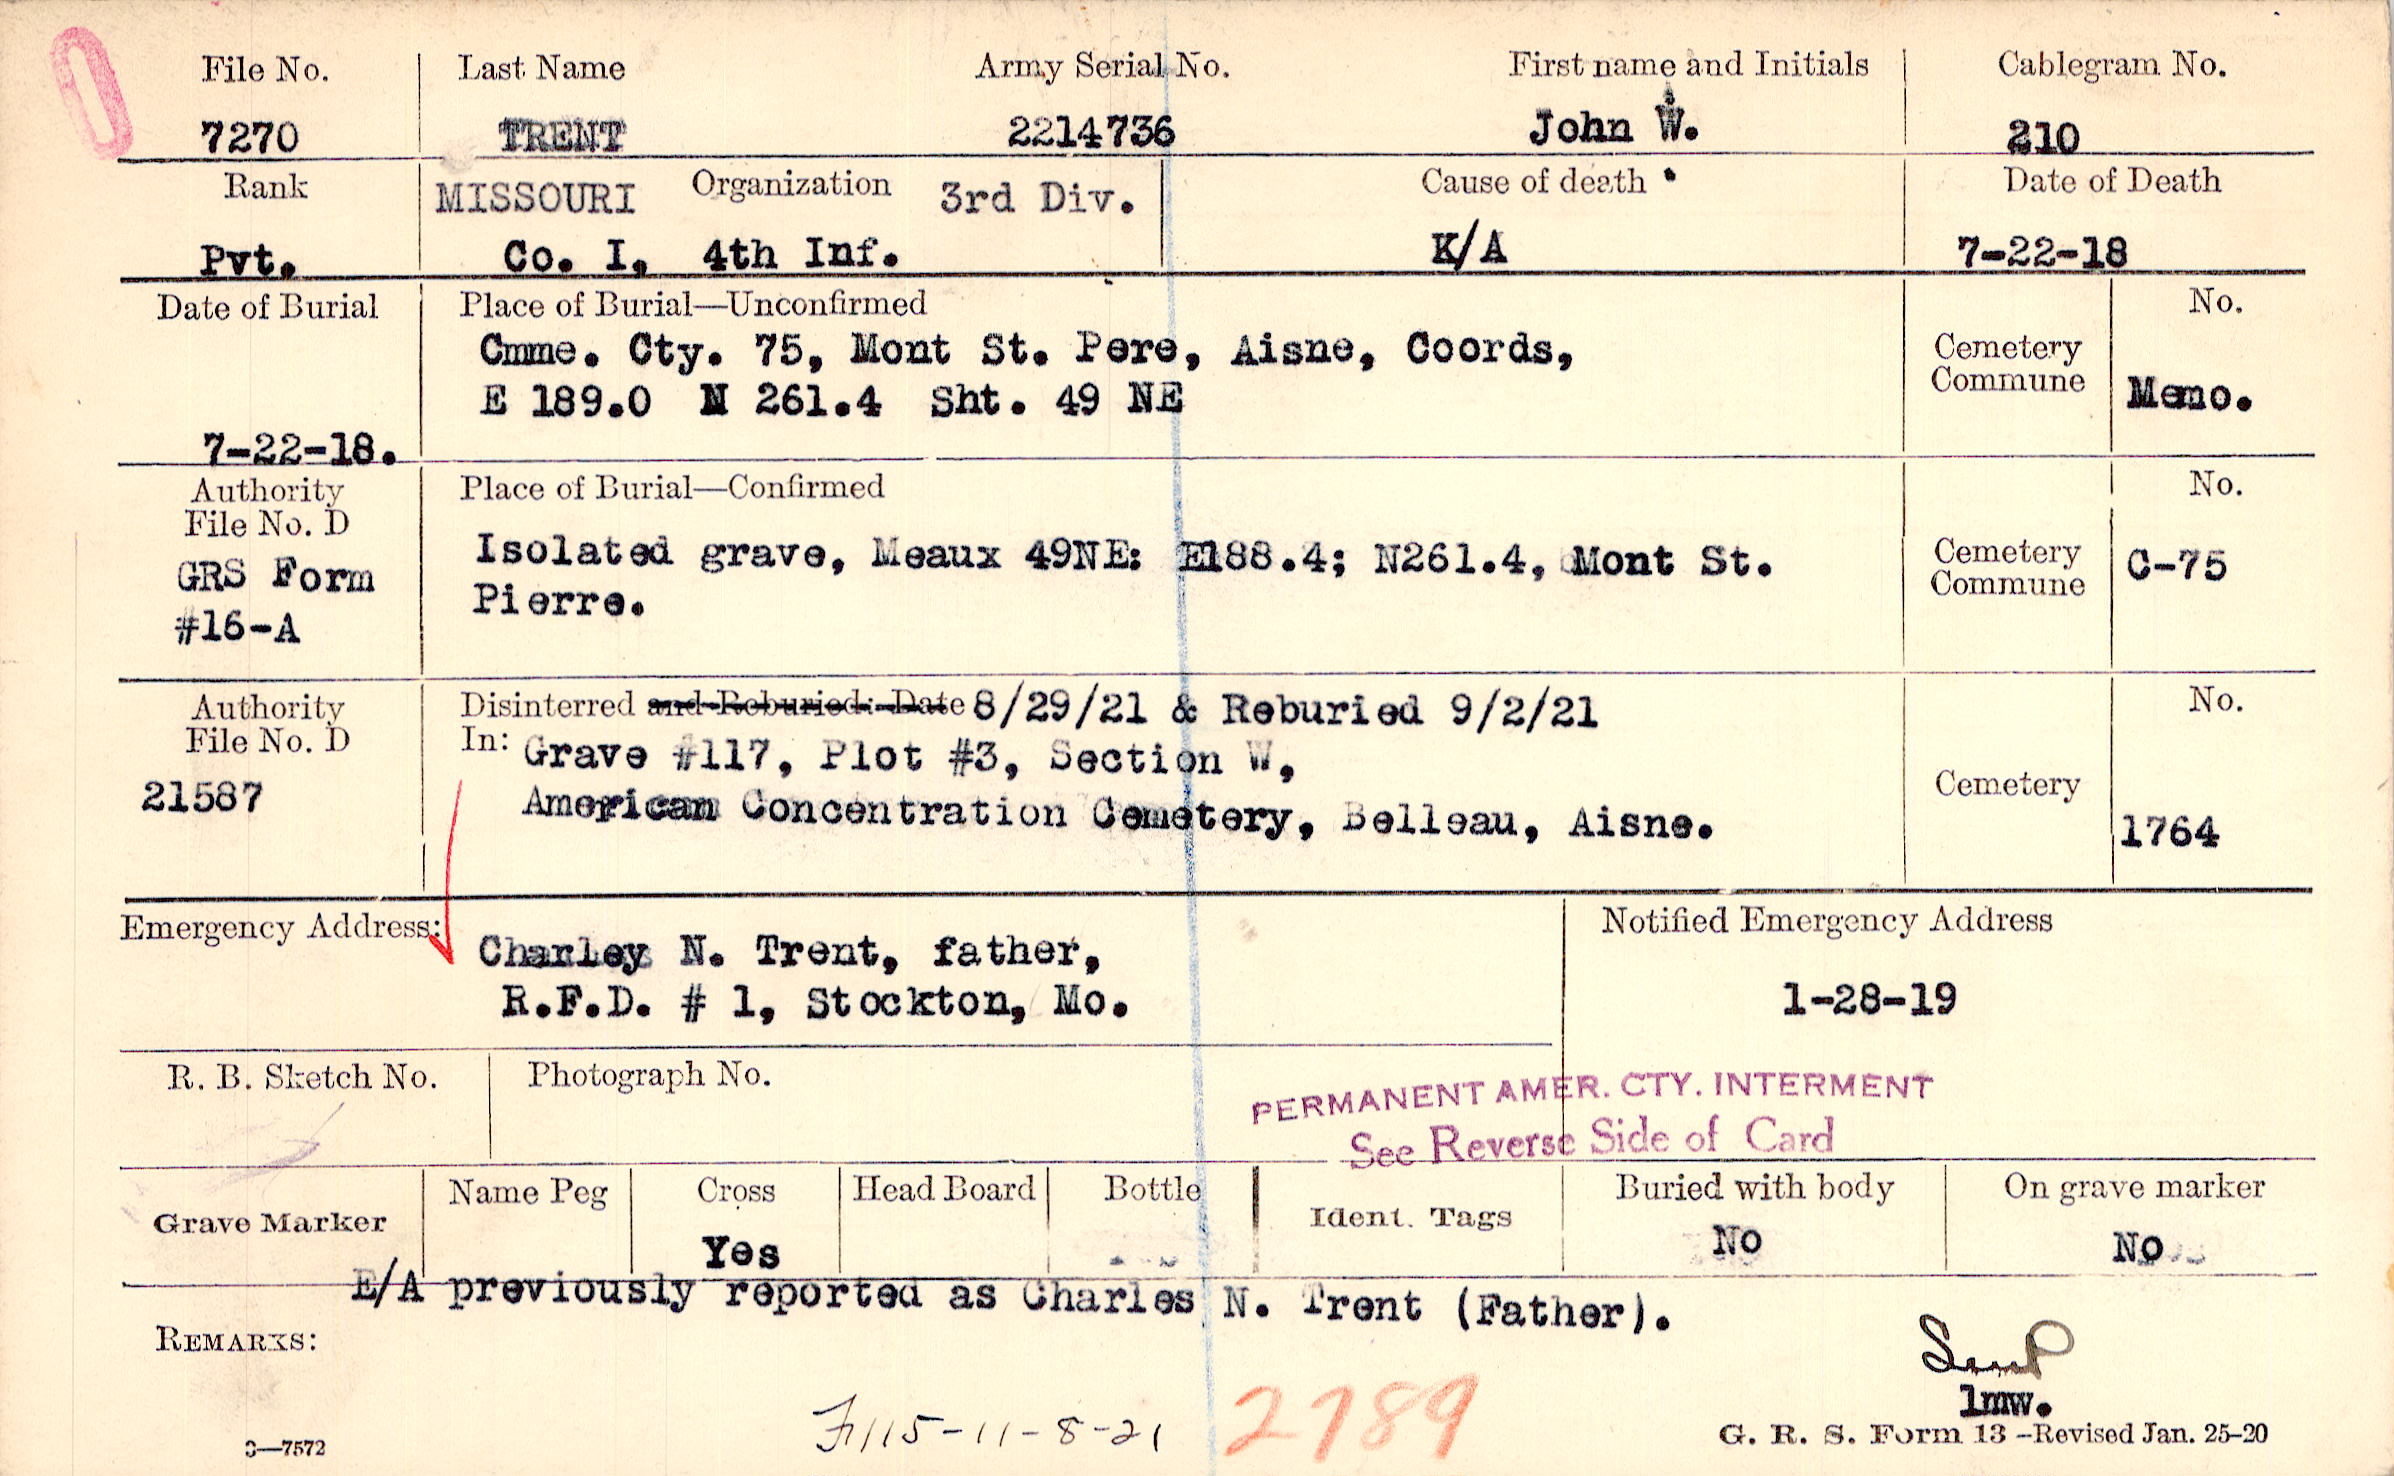 File No. Last Name Army Serial No. First name and Initials Cablegram No.
7270 TRENT 2214736 John W. 210
Rank MISSOURI Organization 3rd Div. Cause of death Date of Death
Pvt. Co. I, 4th Inf. K/A 7-22-18
Date of Burial Place of Burial—Unconfirmed No.
Cmme. Cty. 75, Mont St. Pere, Aisne, Coords, Cemetery
E 189.0 N 261.4 Sht. 49 NE Commune Memo.
7-22-18.
Authority Place of Burial—Confirmed No.
File No. D
GRS Form Isolated grave, Meaux 49NE: E188.4; N261.4, Mont St. Cemetery C-75
#16-A Pierre. Commune
Authority Disinterred and Reburied: Date 8/29/21 & Reburied 9/2/21 No.
File No. D In: Grave #117, Plot #3, Section W,
21587 American Concentration Cemetery, Belleau, Aisne. Cemetery 1764
Emergency Address: Notified Emergency Address
Charley N. Trent, father,
R.F.D. # 1, Stockton, Mo. 1-28-19
R. B. Sketch No. Photograph No.
PERMANENT AMER. CTY. INTERMENT
See Reverse Side of Card
Grave Marker Name Peg Cross Head Board Bottle Ident. Tags Buried with body On grave marker
Yes No No
E/A previously reported as Charles N. Trent (Father).
REMARKS:
lmw.
115-11-8-21 2789
3—7572 G. R. S. Form 13—Revised Jan. 25-20